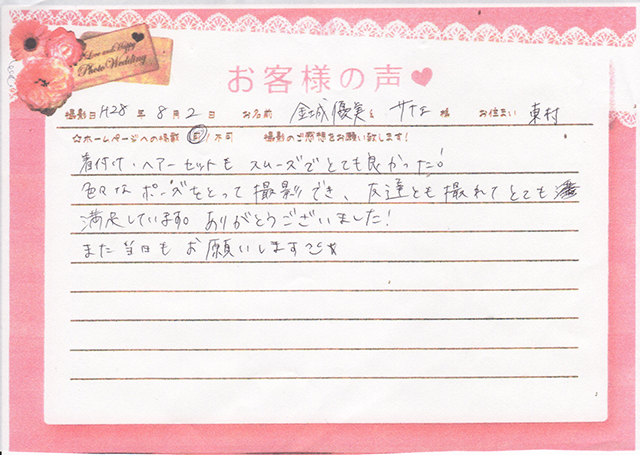 Love and Happy
Photo Wedding
お客様の声
撮影日 H28 年 8 月 2 日 お名前 金城優美 & サチエ 様 お住まい 東村
☆ホームページへの掲載 可 / 不可 撮影のご感想をお願い致します!
着付け・ヘアーセットも スムーズでとても良かったです!
色々な ポーズをとって 撮影でき、友達とも撮れて とても
満足しています。ありがとうございました!
また当日もお願いします